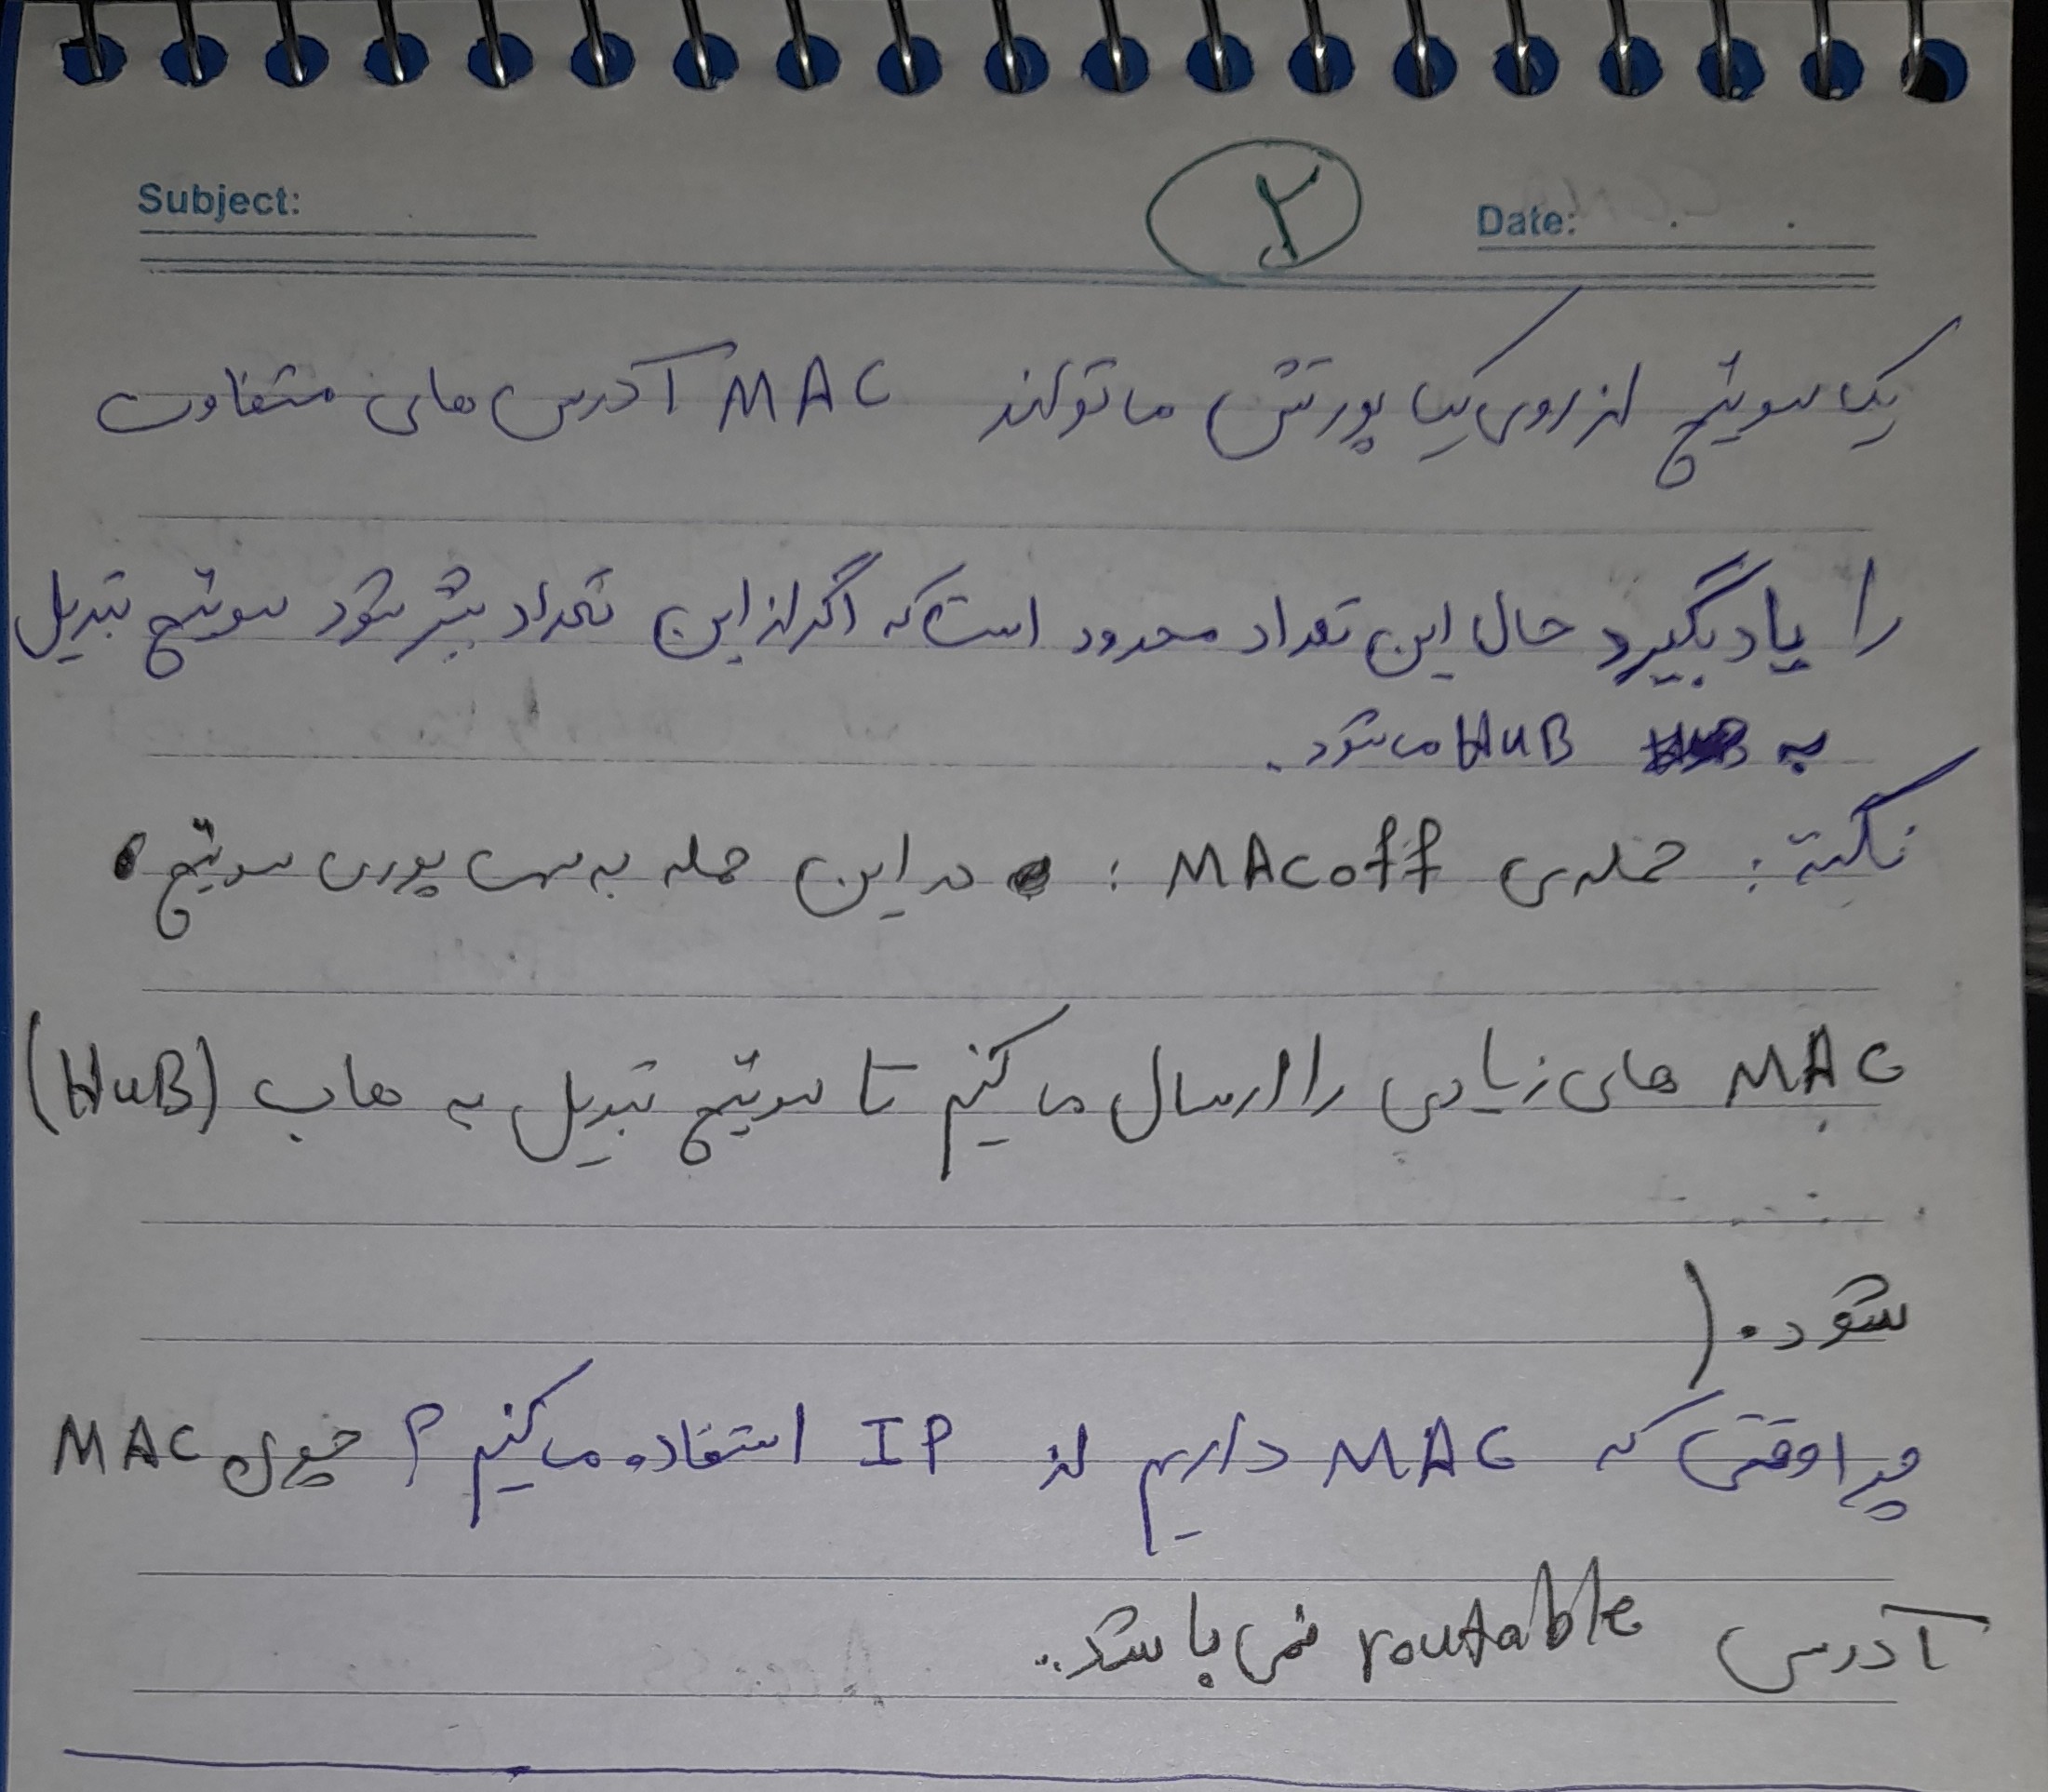 Subject:
۲
Date:
یک سوئیچ از روی یک پورتش می تواند MAC آدرس های متفاوت
را یاد بگیرد حال این تعداد محدود است که اگر از این تعداد بیشتر شود سوئیچ تبدیل
به HUB می شود.
نکته: حمله ی MACoff : در این حمله به سمت پورت سوئیچ
MAC های زیادی را ارسال می کنیم تا سوئیچ تبدیل به هاب (HUB)
شود.(
چرا وقتی که MAC داریم از IP استفاده می کنیم؟ چون MAC
آدرس routable نمی باشد..